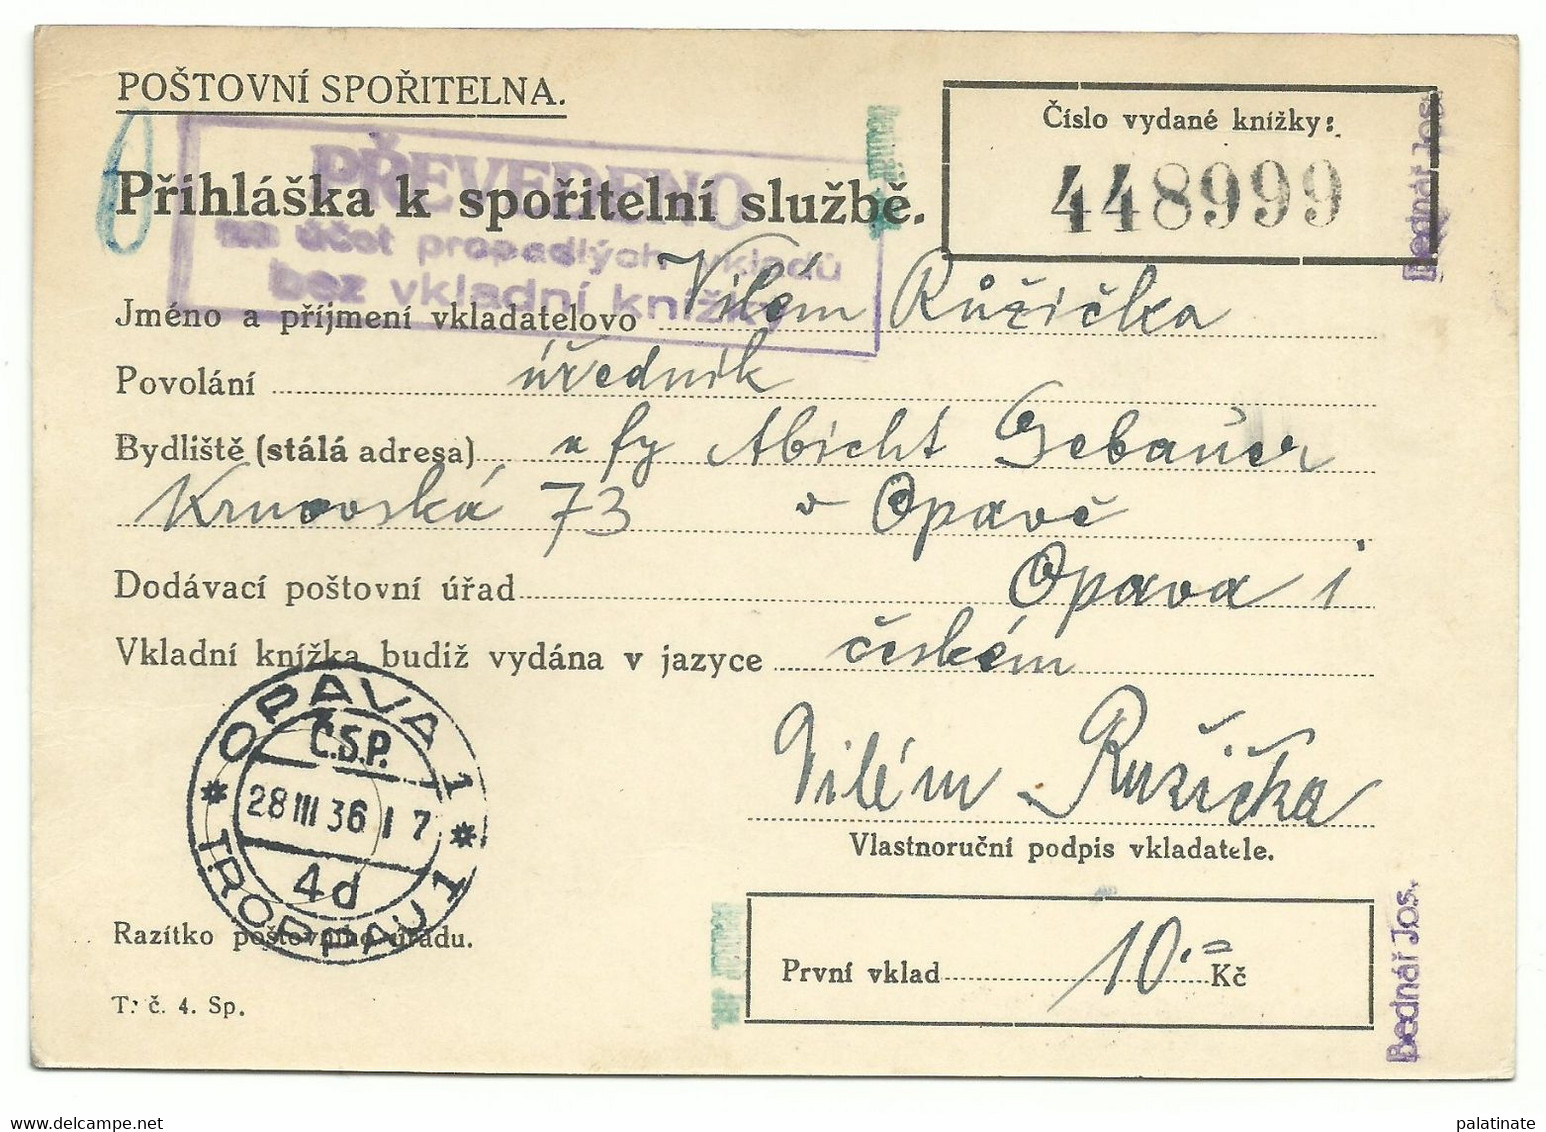 POŠTOVNÍ SPOŘITELNA.
Číslo vydané knížky:
448999
PŘEVEDENO
na účet propadlých vkladů
bez vkladní knížky
Přihláška k spořitelní službě.
Jméno a příjmení vkladatelovo Vilém Růžička
Povolání úředník
Bydliště (stálá adresa) u fy Abicht Gebauer
Krnovská 73 v Opavě
Dodávací poštovní úřad Opava 1
Vkladní knížka budiž vydána v jazyce českém
OPAVA 1
Č.S.P.
28 III 36 17
4d
TROPPAU 1
Vilém Růžička
Vlastnoruční podpis vkladatele.
Razítko poštovního úřadu.
První vklad 10.= Kč
T. č. 4. Sp.
Bednář Jos.
Bednář Jos.
www.delcampe.net
palatinate